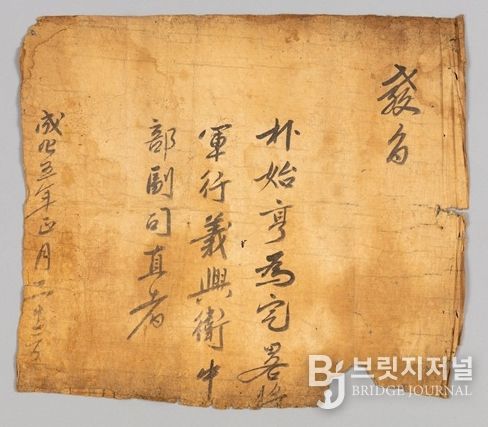 教旨
朴始亨爲定畧將
軍行義興衛中
部副司直者
成化五年正月二十二日
브릿지저널
BRIDGE JOURNAL